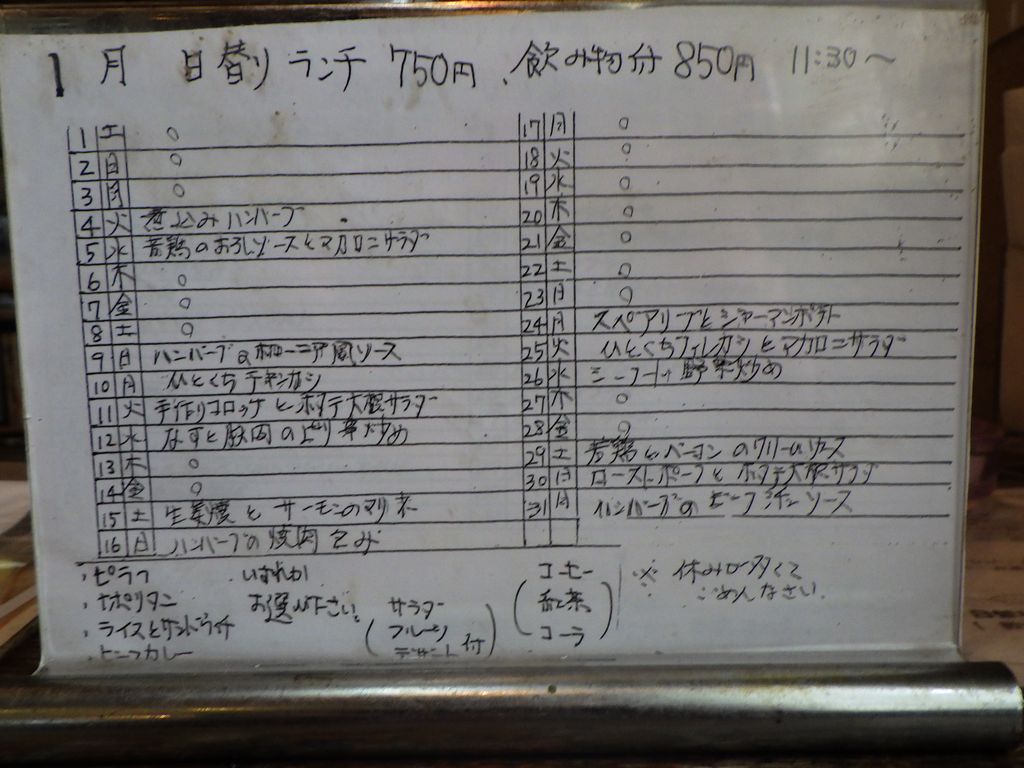 1月 日替りランチ 750円、飲み物付850円 11:30～
1 土 〃
2 日 〃
3 月 〃
4 火 煮込みハンバーグ
5 水 若鶏のおろしソースとマカロニサラダ
6 木 〃
7 金 〃
8 土 〃
9 日 ハンバーグのボローニア風ソース
10 月 ひとくちチキンカツ
11 火 手作りコロッケとホタテ大根サラダ
12 水 なすと豚肉のピリ辛炒め
13 木 〃
14 金 〃
15 土 生姜焼とサーモンのマリネ
16 日 ハンバーグの焼肉包み
17 月 〃
18 火 〃
19 水 〃
20 木 〃
21 金 〃
22 土 〃
23 日 〃
24 月 スペアリブとジャーマンポテト
25 火 ひとくちフィレカツとマカロニサラダ
26 水 シーフード野菜炒め
27 木 〃
28 金 〃
29 土 若鶏とベーコンのクリームソース
30 日 ローストポークとホタテ大根サラダ
31 月 ハンバーグのビーフシチューソース
・ピラフ
・ナポリタン
・ライスとサンドウィッチ
・ビーフカレー
いずれか
お選び下さい。
(サラダ
フルーツ
デザート付)
(コーヒー
紅茶
コーラ)
※ 休みが多くて
ごめんなさい。